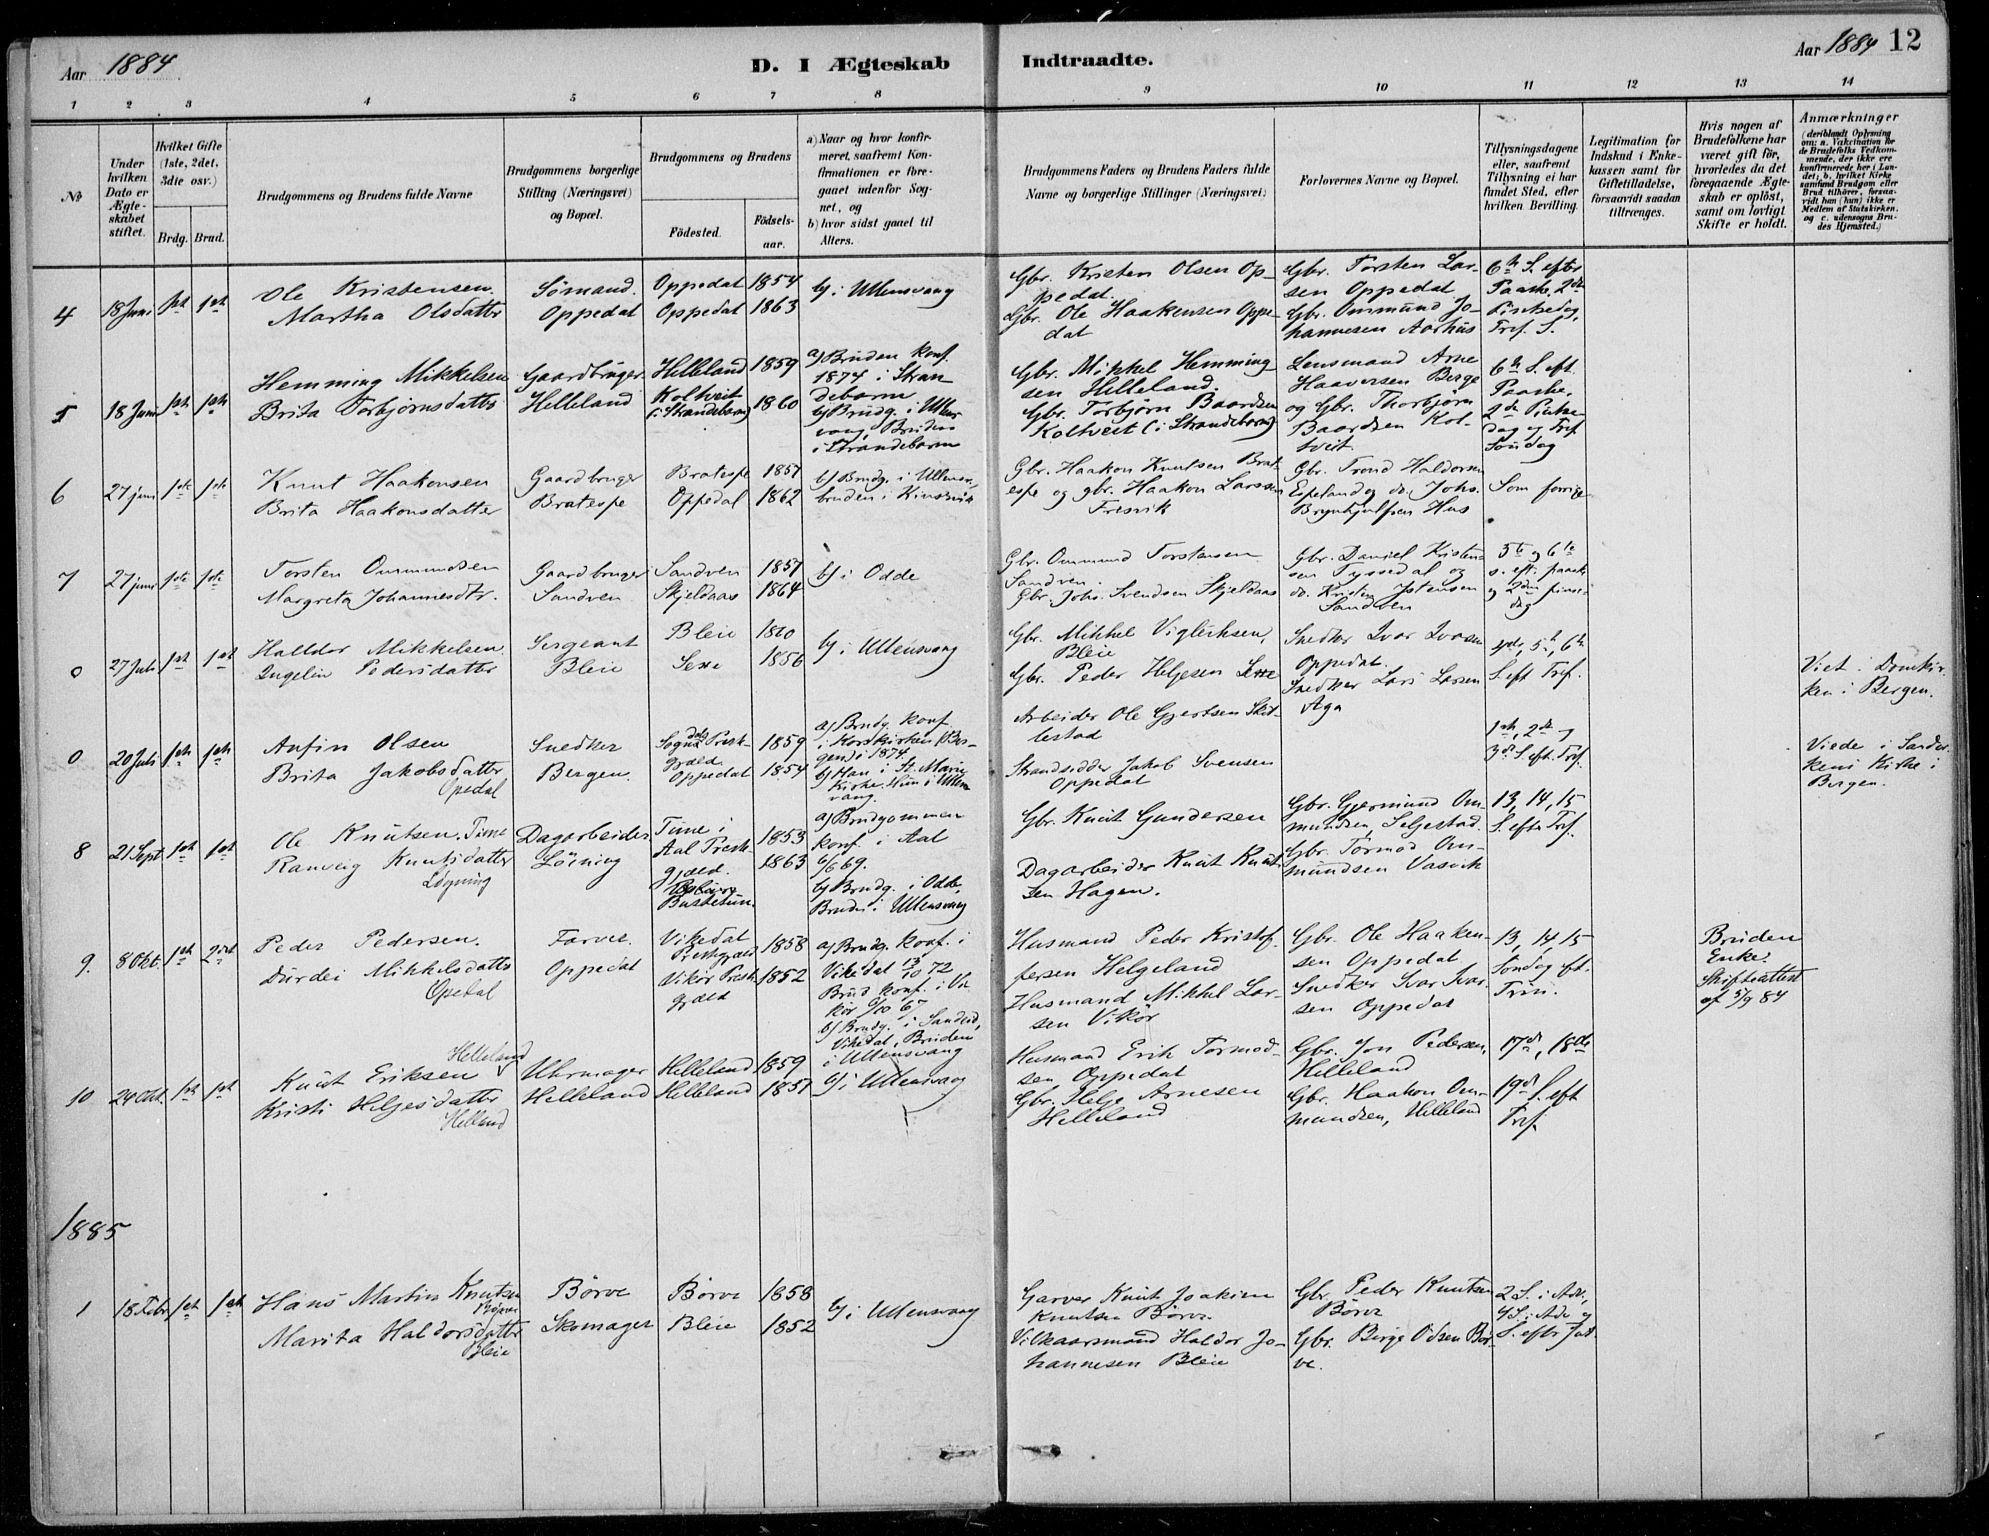 Aar 1884
D. I Ægteskab
Indtraadte.
Aar 1884 12
1 2 3 4 5 6 7 8 9 10 11 12 13 14
№
Under hvilken Dato er Ægteskabet stiftet.
Hvilket Gifte (1ste, 2det, 3die osv.)
Brdg. Brud.
Brudgommens og Brudens fulde Navne
Brudgommens borgerlige Stilling (Næringsvei) og Bopæl.
Brudgommens og Brudens
Födested.
Födselsaar.
a) Naar og hvor konfirmeret, saafremt Konfirmationen er foregaaet udenfor Sognet, og
b) hvor sidst gaaet til Alters.
Brudgommens Faders og Brudens Faders fulde Navne og borgerlige Stillinger (Næringsvei)
Forlovernes Navne og Bopæl.
Tillysningsdagene eller, saafremt Tillysning ei har fundet Sted, efter hvilken Bevilling.
Legitimation for Indskud i Enkekassen samt for Giftetilladelse, forsaavidt saadan tiltrænges.
Hvis nogen af Brudefolkene har været gift för, hvorledes da det foregaaende Ægteskab er oplöst, samt om lovligt Skifte er holdt.
Anmærkninger
(deriblandt Oplysning om: a. Vakcination for de Brudefolks Vedkommende, der ikke ere konfirmerede her i Landet; b. hvilket Kirkesamfund Brudgom eller Brud tilhörer, forsaavidt han (hun) ikke er Medlem af Statskirken, og c. udensogns Brudes Hjemsted.)
4 18 Juni 1ste 1ste
Ole Kristensen.
Martha Olsdatter
Sömand.
Oppedal
Oppedal 1854
Oppedal 1863
b) i Ullensvang
Gbr. Kristen Olsen Op-
pedal.
Gbr. Ole Haakensen Oppe-
dal
Gbr. Torsten Lar-
sen Oppedal
Gbr. Ommund Jo-
hannesen Aarhus
6te S. efter
Paaske, 2den
Pinsedag,
Tref. S.
5 18 Juni 1ste 1ste
Hemming Mikkelsen
Brita Torbjörnsdatter
Gaardbruger
Helleland
Helleland 1859
Koltveit
(i Strandebarm) 1860
a) Bruden konf.
1874 i Stran
debarm
b) Brudg. i Ullens
vang, Bruden
i Strandebarm
Gbr. Mikkel Hemming
sen Helleland.
Gbr. Torbjörn Baardsen
Koltveit (i Strandebarm)
Lensmand Arne
Haaversen Berge
og Gbr. Thorbjörn
Baardsen Kol-
tveit
6te S. eft.
Paaske,
2de Pinse-
dag og Tref.
Söndag
6 27 juni 1ste 1ste
Knut Haakonsen
Brita Haakonsdatter
Gaardbruger
Bratespe
Bratespe 1857
Oppedal 1862
b) Brudg. i Ullensv.
bruden i Kinservik
Gbr. Haakon Knutsen Brat-
espe og gbr. Haakon Larssen
Fresvik
Gbr. Trond Haldorsen
Espeland og do. Johs.
Brynhjulfsen Hus
Som forrige
7 27 juni 1ste 1ste
Torsten Ommundsen
Margreta Johannesdtr.
Gaardbruger
Sandven
Sandven 1857
Skjeldaas 1864
b) i Odde
Gbr. Ommund Torstensen
Sandven.
Gbr. Johs. Svendsen Skjeldaas
Gbr. Daniel Kristen-
sen Tyssedal og
do. Kristen Jstensen
Sandven
5te og 6te
s. eft. paask.
og 2den pinse-
dag
0 27 Juli 1ste 1ste
Haldor Mikkelsen
Ingelin Pedersdatter
Sergeant
Bleie
Bleie 1860
Sexe 1856
b) i Ullensvang
Gbr. Mikkel Viglecksen,
Bleie
Gbr. Peder Heljesen Sexe
Snedker Ivar Ivarsen
Oppedal.
Snedker Lars Larsen
Aga
5te, 6te
S. eft Tref.
Viet i Domkir-
ken i Bergen.
0 20 Juli 1ste 1ste
Anfin Olsen
Brita Jakobsdatter
Opedal
Snedker
Bergen.
Sogndals Prest-
gjæld 1859
Oppedal 1854
a) Brudg. konf.
i Korskirken (Ber-
gen) i 1874.
b) Han i St. Marie
Kirke. Hun i Ullens
vang.
Arbeider Ole Gjertsen
Strandsidder Jakob Svensen
Oppedal
1ste, 2de og
3de S. eft. Tref.
Viede i Sand-
kens Kirke i
Bergen.
8 21 Sept 1ste 1ste
Ole Knutsen. Time
Ranveig Knutsdatter
Löyning
Dagarbeider
Löining
Time i
Aal Prest-
gjæld. 1853
1863
Busbetun.
a) Brudgommen
konf i Aal
6/6 69.
b) Brudg. i Odde,
Bruden i Ullensvang
Gbr. Knut Gundersen
Dagarbeider Knut Knut-
sen Hagen.
Gbr. Gjermund Om-
mundsen, Seljestad.
Gbr. Tormod Om-
mundsen Vasvik
13, 14, 15
S. efter Tref.
9. 8 Okt. 1ste 2det
Peder Pedersen.
Durdei Mikkelsdatter
Opedal
Farver.
Oppedal
Vikedal
Prestegjæld 1858
Vikör Prest-
gjæld 1852
a) Brudg. konf. i
Vikedal 13/10 72
Brud konf. i Vi
kör 6/10 67
b) Brudg. i Sandeid,
Vikedal, Bruden
i Ullensvang
Husmand Peder Kristof-
fersen Helgeland
Husmand Mikkel Lar-
sen Vikör
Gbr. Ole Haaken-
sen Oppedal
Snedker Ivar Ivar-
sen Oppedal
13, 14, 15
Söndag eft.
Trin.
Bruden
Enke.
Skifteattest
af 5/9 84
10 24 Okt. 1ste 1ste
Knut Eriksen Helleland
Kristi Heljesdatter
Helland
Uhrmager
Helleland
Helleland 1859
Helleland 1857
b) i Ullensvang
Husmand Erik Tormod-
sen, Oppedal
Gbr. Helje Arnesen
Helleland
Gbr. Jon Pedersen,
Helleland
Gbr. Haakon Om-
mundsen, Helleland
17de, 18de
19de S. eft
Tref.
1885
1 18 Febr 1ste 1ste
Hans Martin Knutsen
Börve
Marita Haldorsdatter
Bleie
Börve
Skomager
Börve 1858
Bleie 1852
b) i Ullensvang
Garver Knut Joakim
Knutsen Börve.
Vilkaarsmand Haldor Jo-
hannesen Bleie
Gbr. Peder Knutsen
Börve
Gbr. Birge Odsen Bör-
ve.
2 S. i Adv.,
4 S. i Adv og
S. efter Jul.